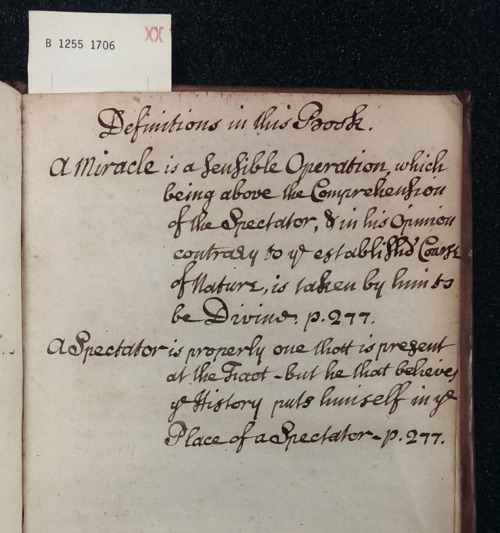 B 1255 1706
XX
Definitions in this Book.
A Miracle is a sensible Operation, which
being above the Comprehension
of the Spectator, & in his Opinion
contrary to ye establish'd Course
of Nature, is taken by him to
be Divine. p. 277.
A Spectator is properly one thatt is present
at the Fact - but he that believes
ye History puts himself in ye
Place of a Spectator - p. 277.